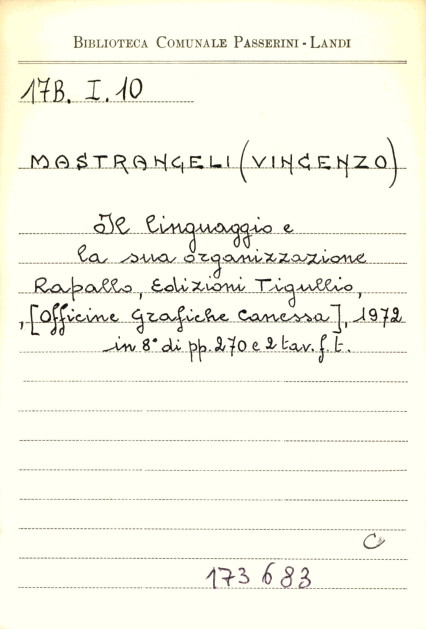 BIBLIOTECA COMUNALE PASSERINI - LANDI
17B. I. 10
MASTRANGELI (VINCENZO)
Il linguaggio e
la sua organizzazione
Rapallo, Edizioni Tigullio,
, [Officine Grafiche Canessa], 1972
in 8° di pp. 270 e 2 tav. f. t.
C
173683